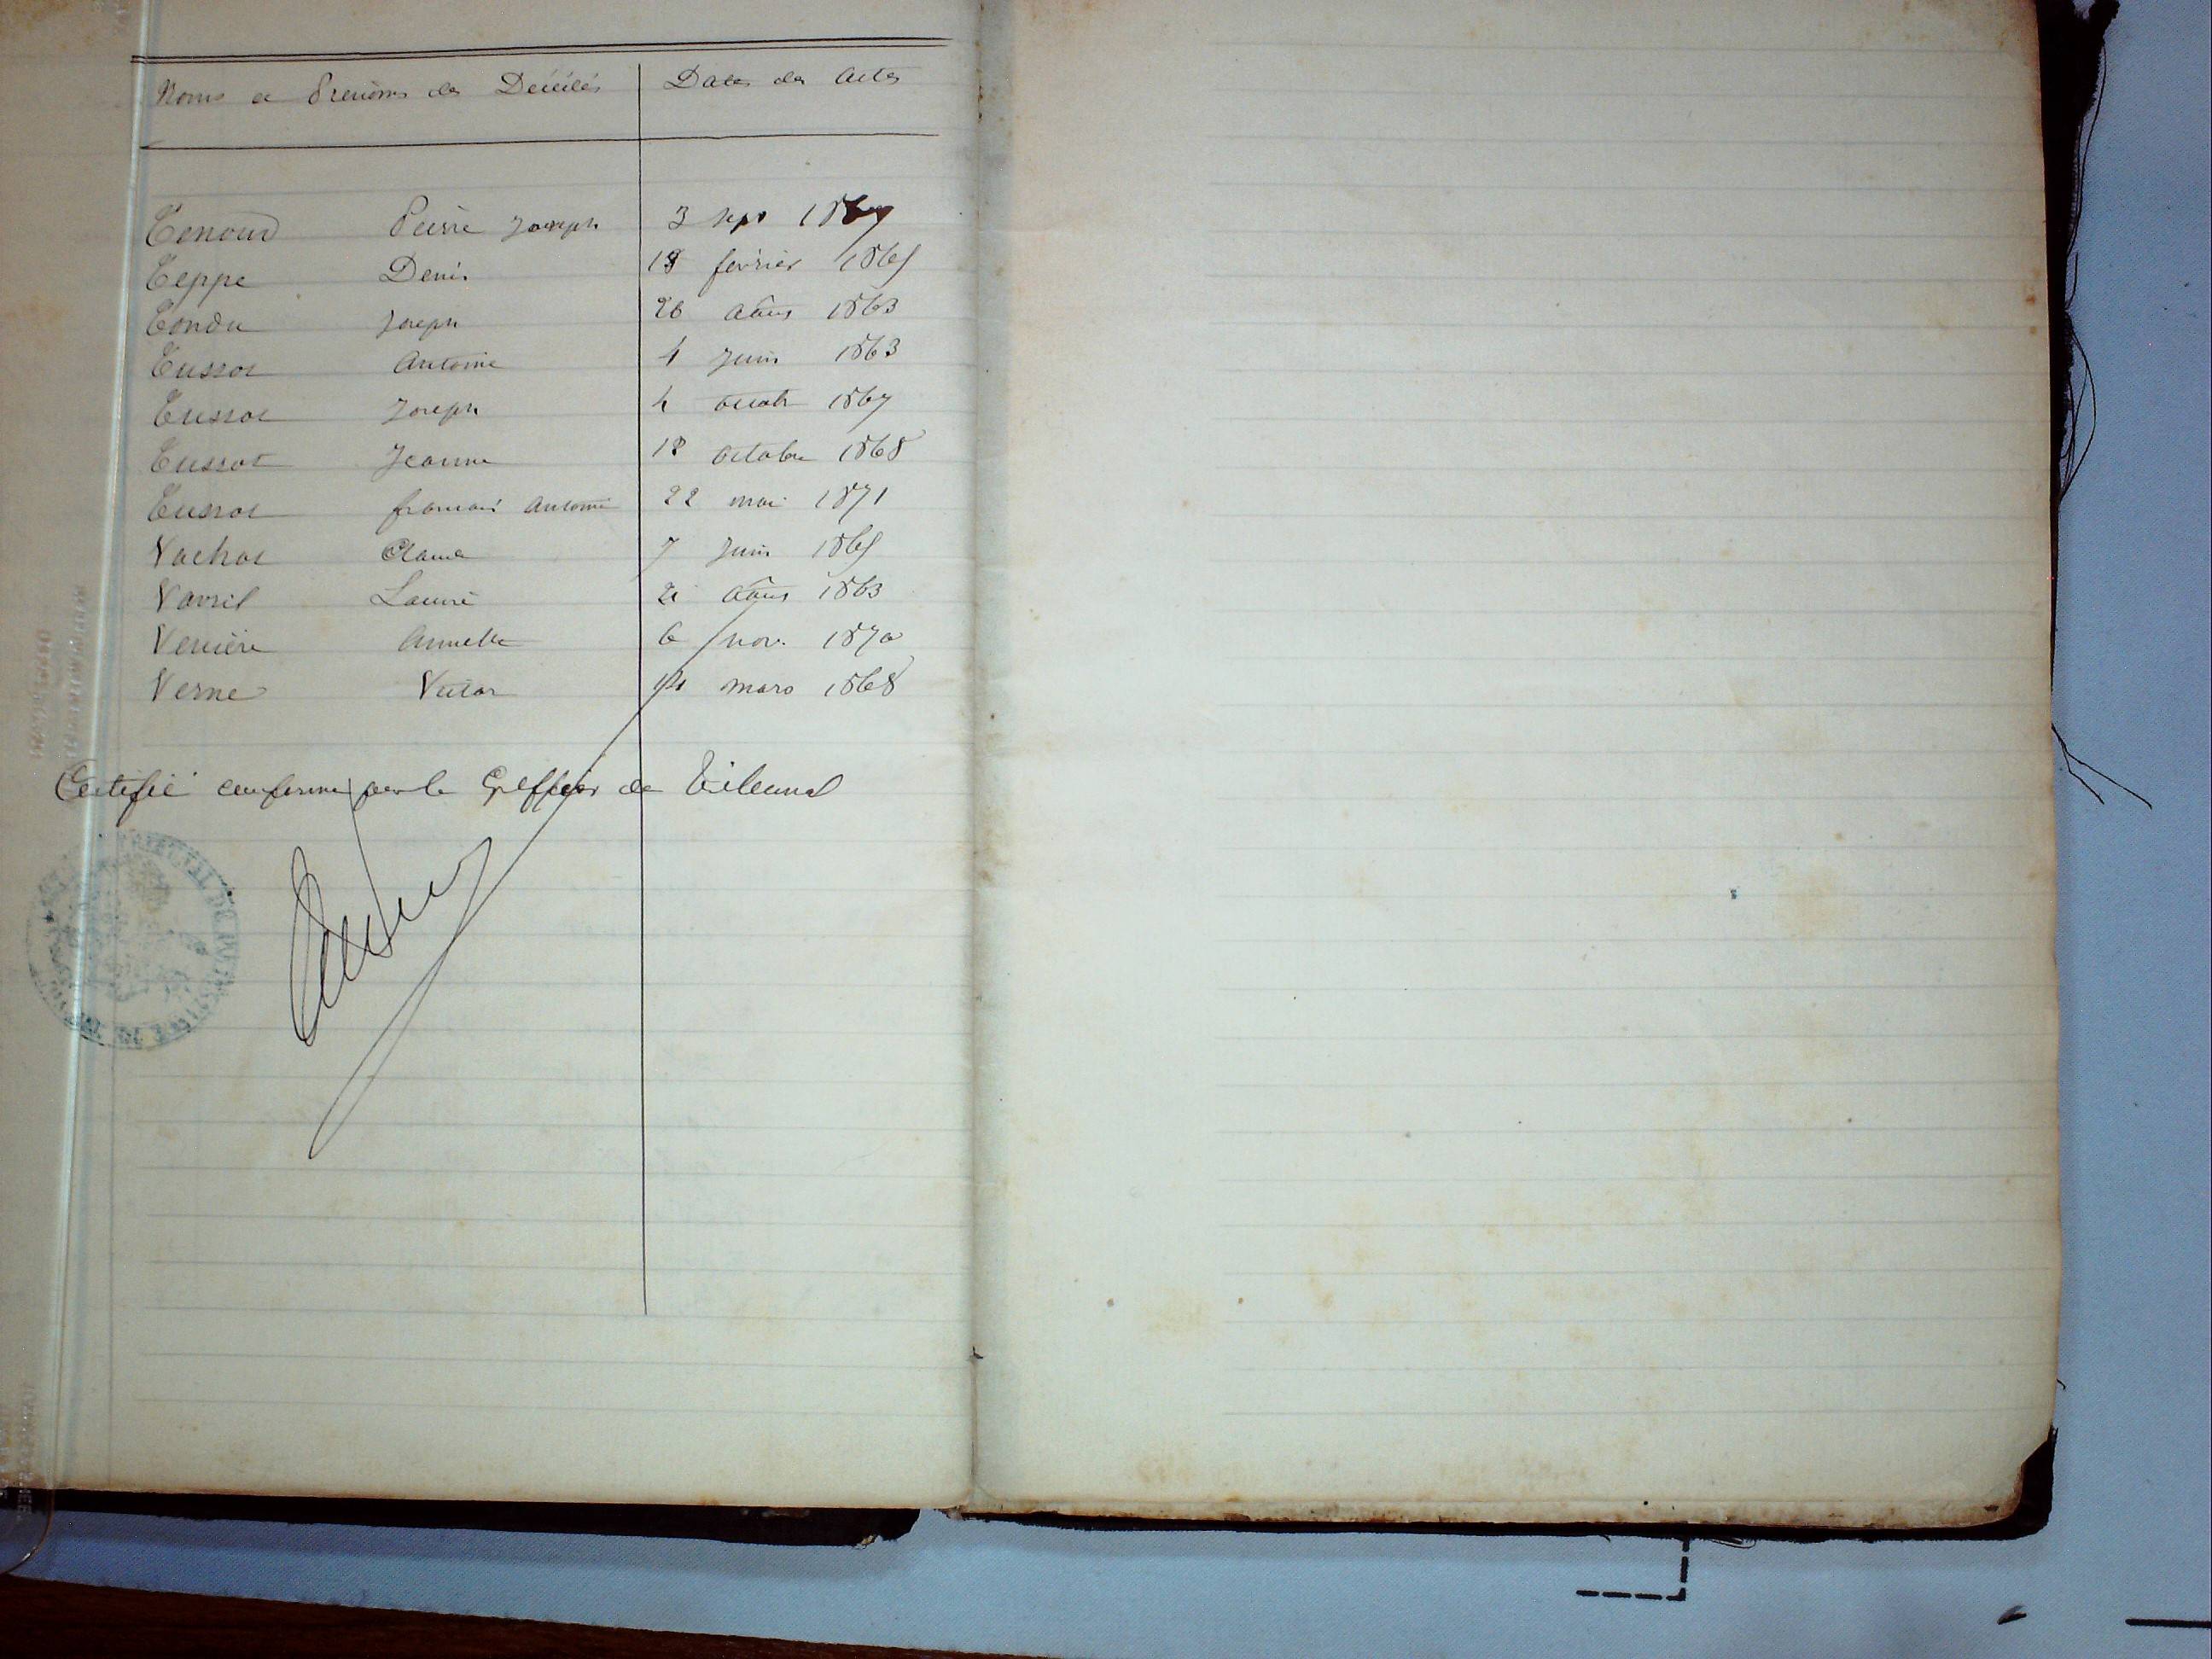 Noms et Prénoms des Décédés Dates des Actes
Tenoud Pierre Joseph 3 sept
Teppe Denis 18 février 1865
Tondu Joseph 26 août 1863
Tussot Antoine 4 Juin 1863
Tussot Joseph 4 octob 1867
Tussot Jeanne 18 octobre 1868
Tussot françois Antoine 22 mai 1871
Vachot Claude 7 Juin 1865
Vavril Laure 21 août 1863
Verrière Annette 6 nov. 1870
Verne Victor 14 mars 1868
Certifié conforme par le Greffier du Tribunal
TRIBUNAL DE